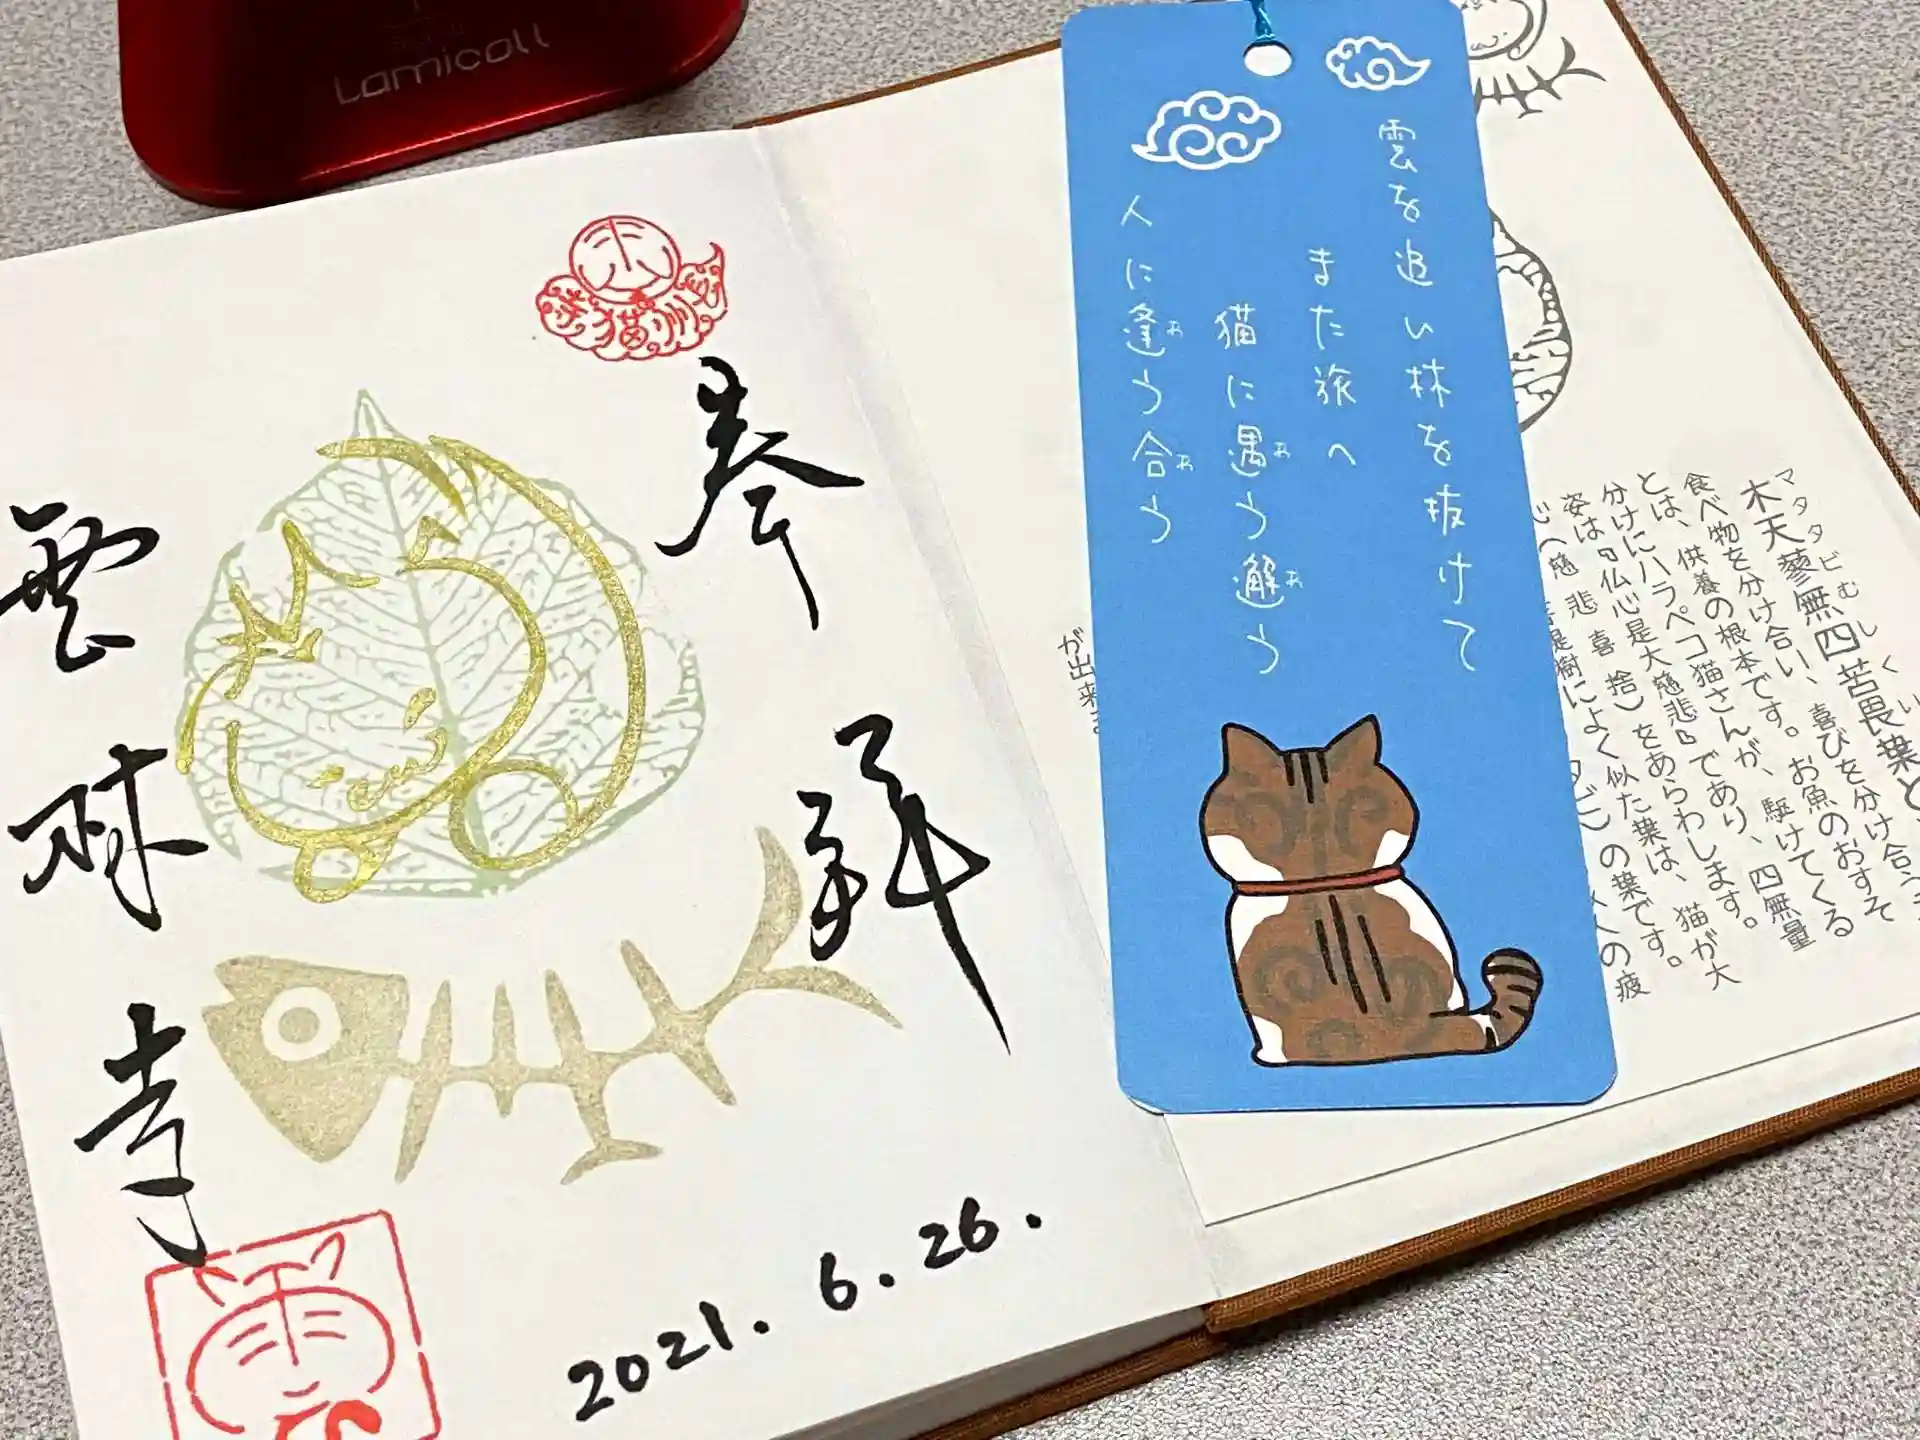 Lamicoll
奉拝
雲林寺
2021. 6. 26.
雲を追い林を抜けて
また旅へ
猫に遇う邂う
人に逢う合う
お
お
お
お
木天蓼無四苦畏葉と
マタタビむしくい
食べ物を分け合い、喜びを分け合う
とは、供養の根本です。お魚のおすそ
分けにハラペコ猫さんが、駆けてくる
姿は『仏心是大慈悲』であり、四無量
心(慈悲喜捨)をあらわします。
樹によく似た葉は、猫が大
タビ)の葉です。
の疲
が出来